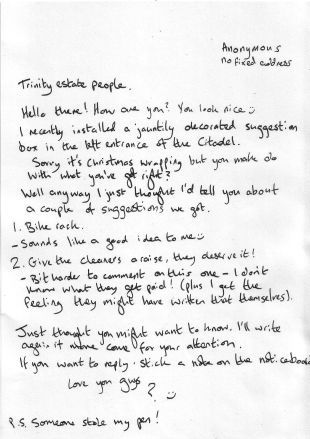 Anonymous
no fixed address
Trinity estate people.
Hello there! How are you? You look nice
I recently installed a jauntily decorated suggestion
box in the left entrance of the Citadel.
Sorry it's Christmas wrapping but you make do
with what you've got right?
Well anyway I just thought I'd tell you about
a couple of suggestions we got.
1. Bike rack.
- Sounds like a good idea to me
2. Give the cleaners a raise, they deserve it!
- Bit harder to comment on this one - I don't
know what they get paid! (plus I get the
feeling they might have written that themselves).
Just thought you might want to know. I'll write
again if more come for your attention.
If you want to reply - stick a note on the noticeboard
Love you guys
?
P.S. Someone stole my pen!